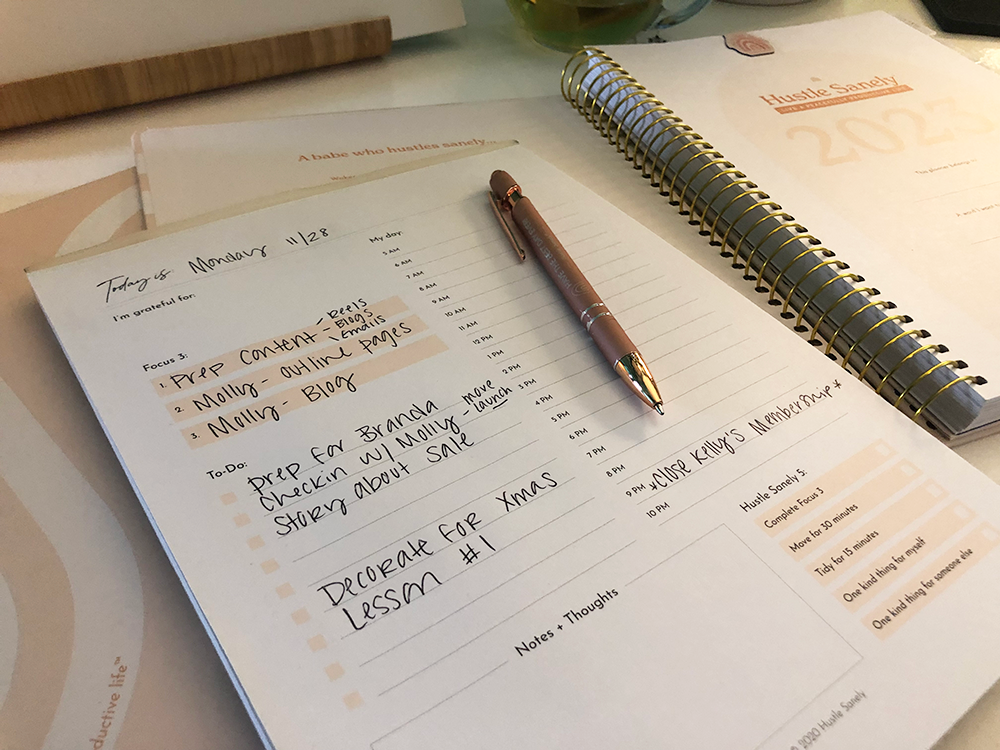 A babe who hustles sanely...
Hustle Sanely
LIVE A PEACEFULLY PRODUCTIVE LIFE
2023
This planner belongs to
Today is: Monday 11/28
I'm grateful for:
Focus 3:
1. Prep Content - Reels
- Blogs
- Emails
2. Molly - outline pages
3. Molly - Blog
To-Do:
Prep for Branda
Checkin w/ Molly - move launch
Story about sale
Decorate for Xmas
Lesson #1
My day:
5 AM
6 AM
7 AM
8 AM
9 AM
10 AM
11 AM
12 PM
1 PM
2 PM
3 PM
4 PM
5 PM
6 PM
7 PM
8 PM
9 PM *close Kelly's Membership*
10 PM
Hustle Sanely 5:
Complete Focus 3
Move for 30 minutes
Tidy for 15 minutes
One kind thing for myself
One kind thing for someone else
Notes + Thoughts
© 2020 Hustle Sanely
ductive life™